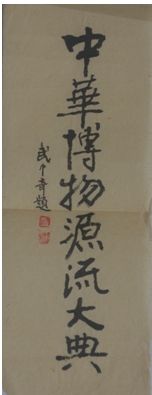 中華博物源流大典
武中奇題